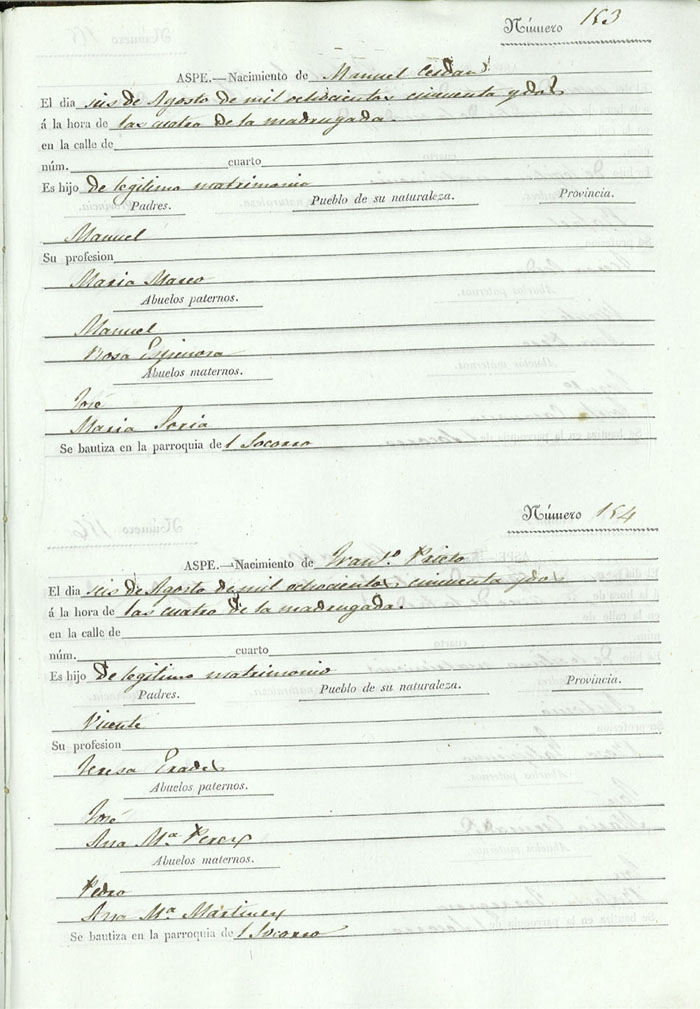 Número 153
ASPE.—Nacimiento de Manuel Cerdan
El dia seis de Agosto de mil ochocientos cincuenta y dos
á la hora de las cuatro de la madrugada.
en la calle de
núm. cuarto
Es hijo de legitimo matrimonio
Padres. Pueblo de su naturaleza. Provincia.
Manuel
Su profesion
Maria Marco
Abuelos paternos.
Manuel
Rosa Espinosa
Abuelos maternos.
José
Maria Soria
Se bautiza en la parroquia del Socorro
Número 154
ASPE.—Nacimiento de Fran.co Prieto
El dia seis de Agosto de mil ochocientos cincuenta y dos
á la hora de las cuatro de la madrugada.
en la calle de
núm. cuarto
Es hijo de legitimo matrimonio
Padres. Pueblo de su naturaleza. Provincia.
Vicente
Su profesion
Teresa Prades
Abuelos paternos.
José
Ana M.a Perez
Abuelos maternos.
Pedro
Ana M.a Martinez
Se bautiza en la parroquia del Socorro